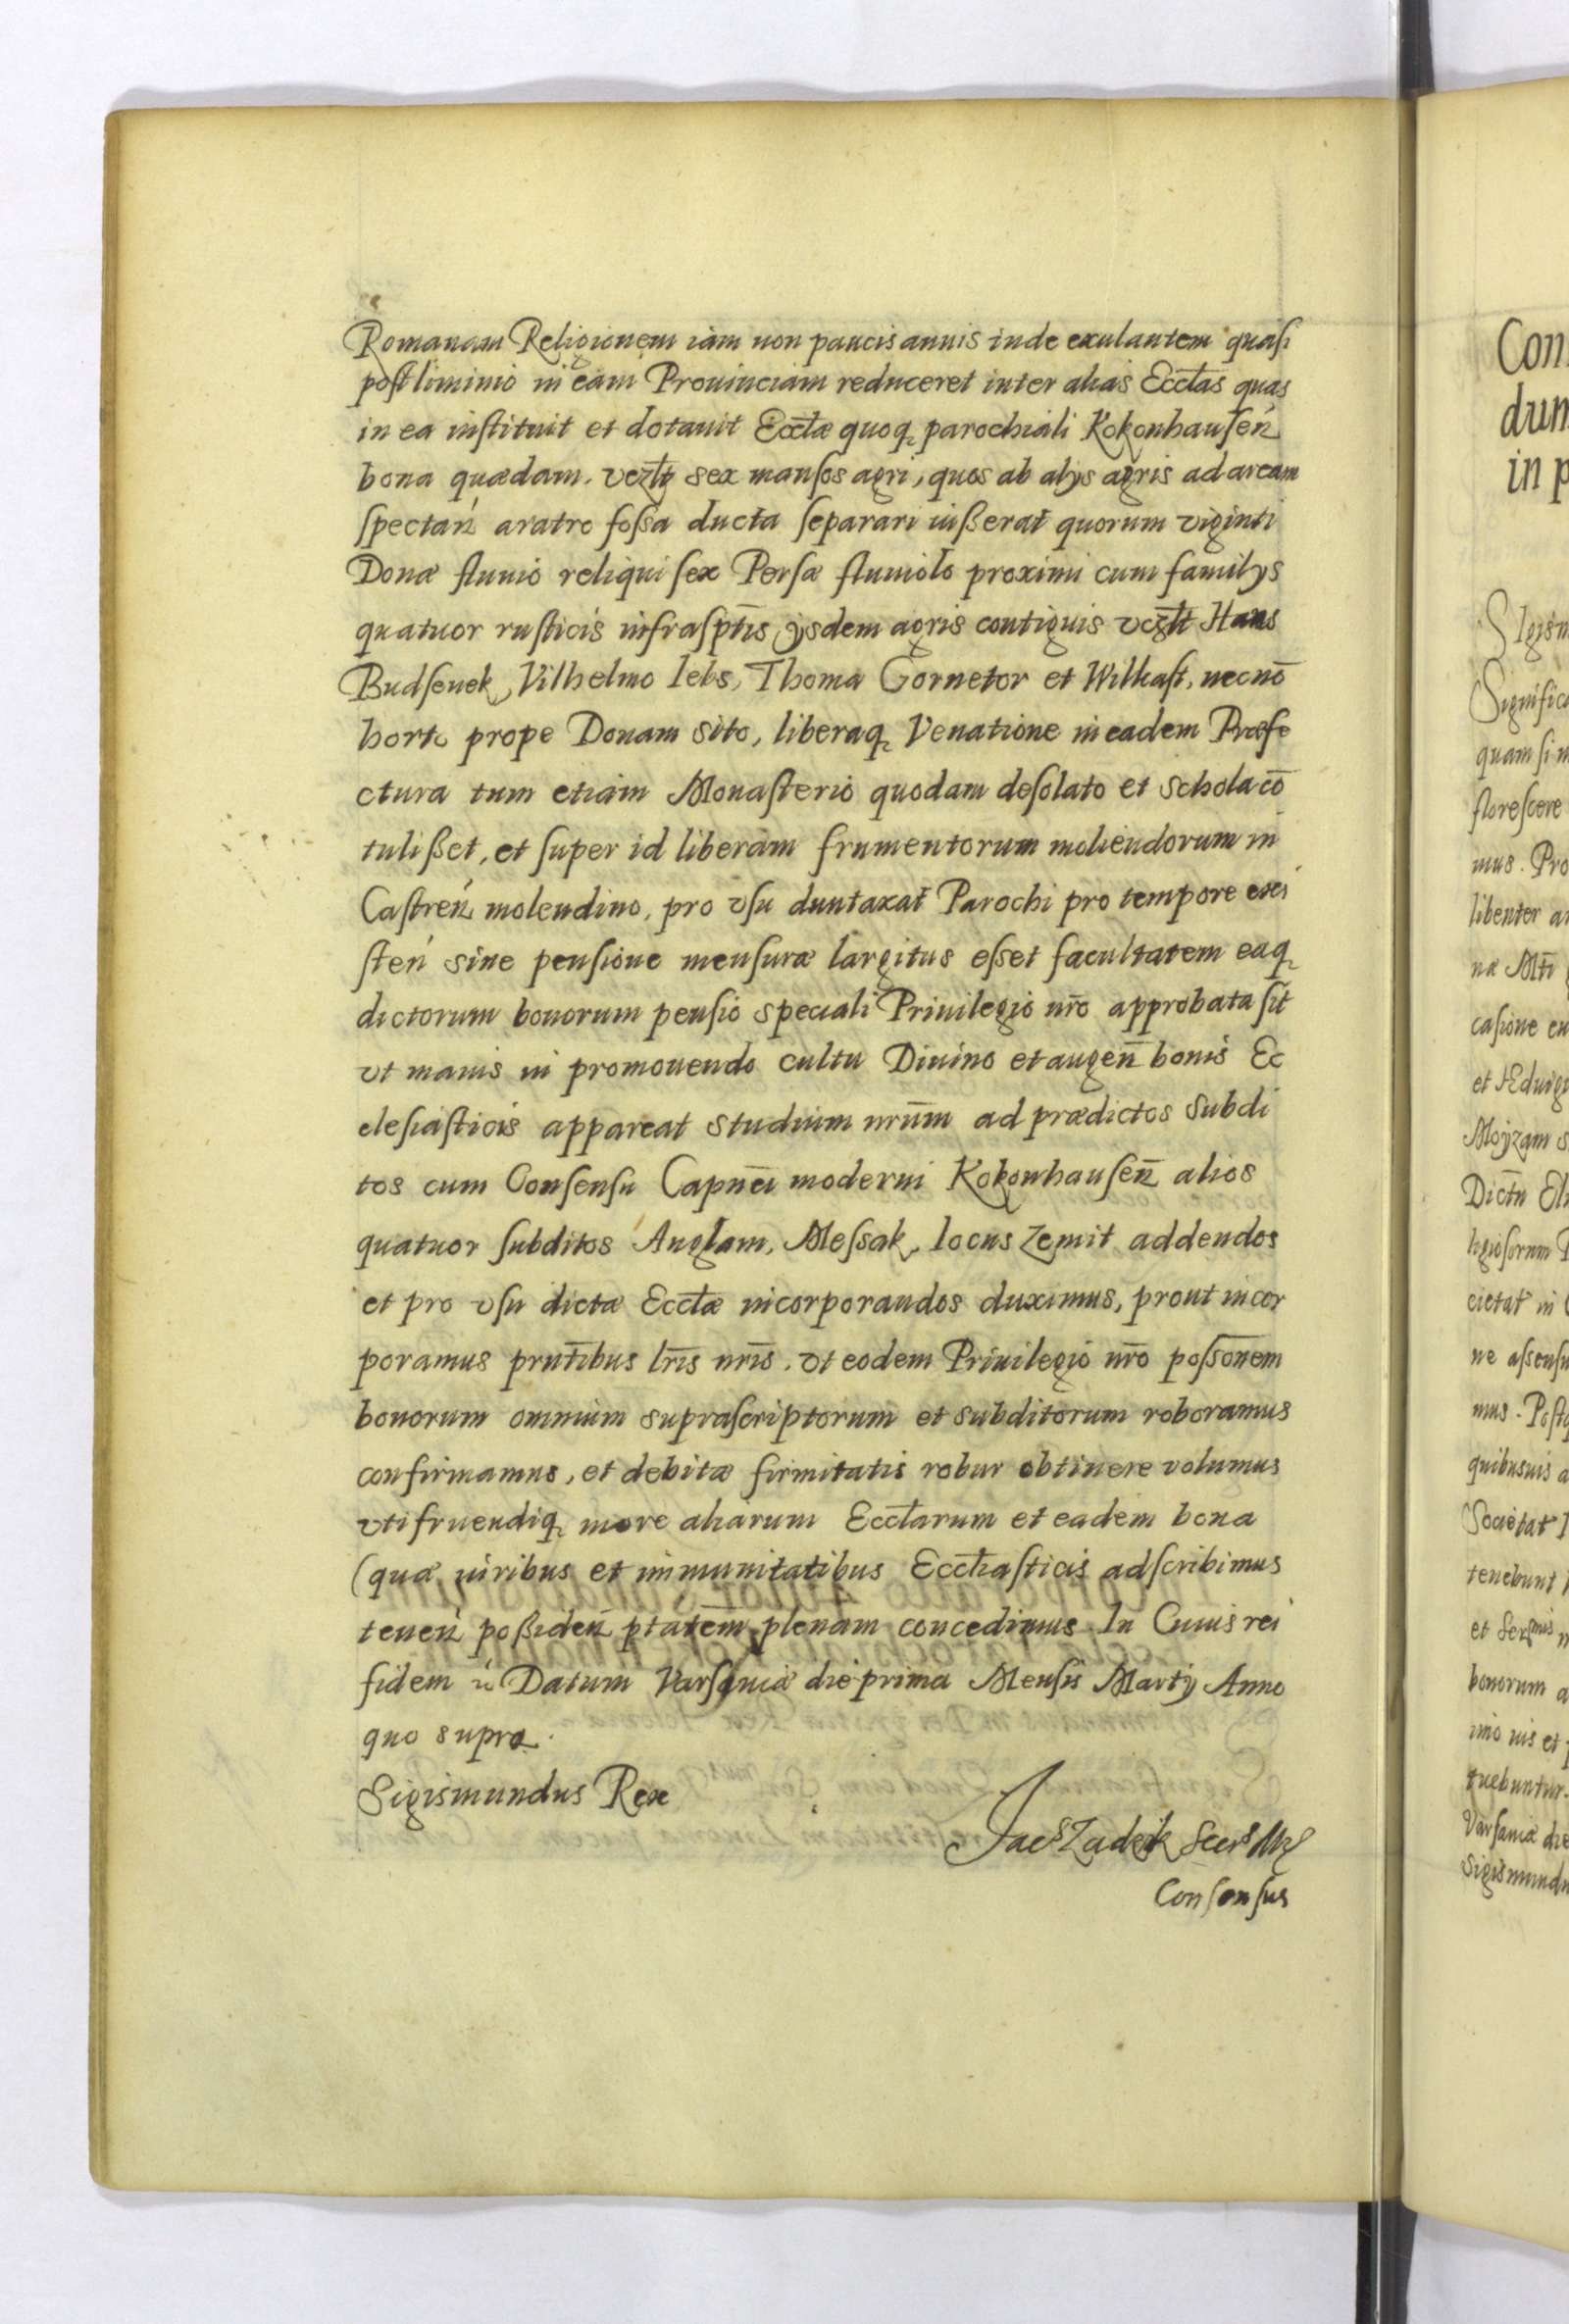 Romanam Religionem iam non paucis annis inde exulantem quaſi
poſtliminio in eam Prouinciam reduceret inter alias Eccl̄as quas
in ea inſtituit et dotauit Eccl̄æ quoq parochiali Kokonhauſen
bona quædam. vczlt sex manſos agri, quos ab alÿs agris ad aream
ſpectan aratro foſsa ducta ſeparari iußerat quorum viginti
Donæ fluuio reliqui ſex Perſæ fluuiolo proximi cum familÿs
quatuor ruſticis infraſpt̄is ÿsdem agris contiguis vczlt Hans
Budſenek, Vilhelmo Iebs, Thoma Gornetor et Wilkaſt, necnō
horto prope Donam sito, liberaq Venatione in eadem Præfe
ctura tum etiam Monaſterio quodam deſolato et schola cō
tulißet, et ſuper id liberam frumentorum moliendorum in
Caſtren molendino, pro vſu duntaxat Parochi pro tempore exi
ſten sine penſione menſuræ largitus eſset facultatem eaq
dictorum bonorum penſio speciali Priuilegio nr̄o approbata ſit
vt manis in promouendo cultu Diuino et augen̄ bonis Ec
cleſiaſticis appareat studium nrūm ad prædictos subdi
tos cum Conſenſu Capnēi moderni Kokonhauſen̄ alios
quatuor ſubditos Anglam, Meſsak, locus Zemit addendos
et pro vſu dictæ Eccl̄æ incorporandos duximus, prout incor
poramus prnt̄ibus lr̄is nr̄is. vt eodem Priuilegio nr̄o poſsōnem
bonorum omnium supraſcriptorum et subditorum roboramus
confirmamus, et debitæ firmitatis robur obtinere volumus
vtifruendiq more aliarum Eccl̄arum et eadem bona
(quæ iuribus et immunitatibus Eccl̄iaſticis adſcribimus
tenen poßiden ptātem plenam concedimus. In Cuius rei
fidem Datum Varſauiæ die prima Menſis Martÿ Anno
quo supra.
Sigismundus Rex
Jacs Zadzik Secrs
Conſenſus
Con
dum
in p
Sigism
Significa
quam ſi
floreſcere
mus. Pro
libenter
næ Mt̄i
caſione
et Hduigi
Moÿzam s
Dictn
ligioſorum
cietat in
ne aſsenſu
mus. Poſtq
quibusuis a
Societat I
tenebunt
et
bonorum a
imo uis et
tuebuntur.
Varſauiæ die
Sigismundu